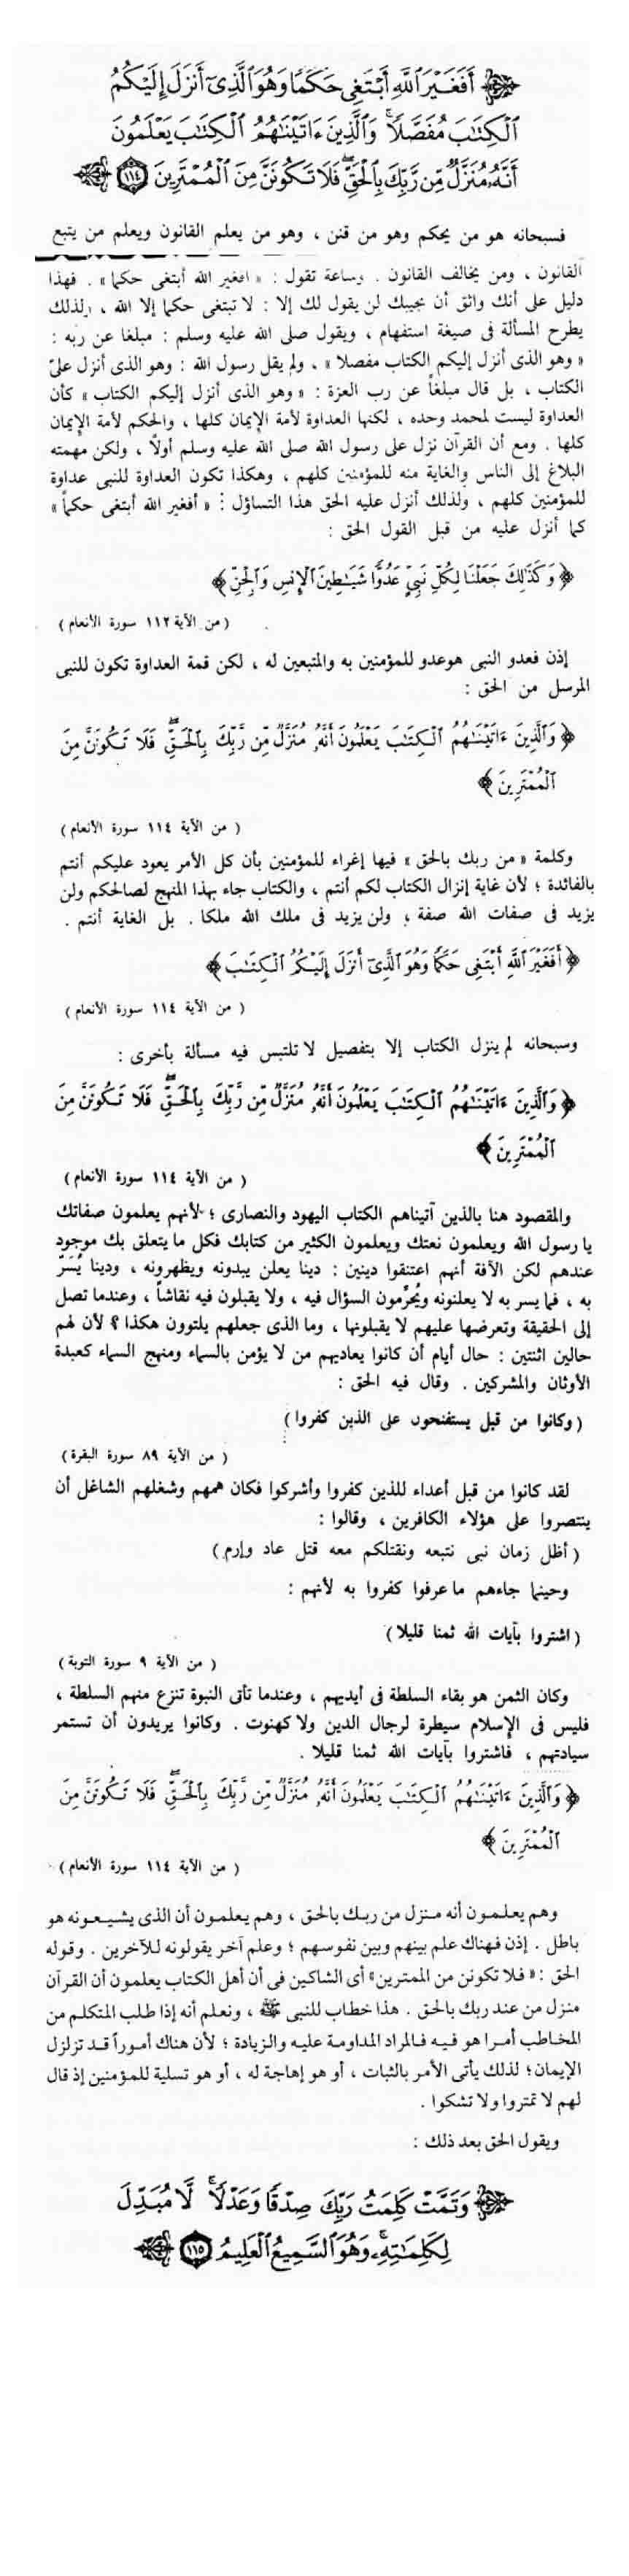 أَفَغَيْرَ ٱللَّهِ أَبْتَغِى حَكَمًا وَهُوَ ٱلَّذِىٓ أَنزَلَ إِلَيْكُمُ
ٱلْكِتَٰبَ مُفَصَّلًا ۚ وَٱلَّذِينَ ءَاتَيْنَٰهُمُ ٱلْكِتَٰبَ يَعْلَمُونَ
أَنَّهُۥ مُنَزَّلٌ مِّن رَّبِّكَ بِٱلْحَقِّ ۖ فَلَا تَكُونَنَّ مِنَ ٱلْمُمْتَرِينَ ١١٤
فسبحانه هو من يحكم وهو من قنن ، وهو من يعلم القانون ويعلم من يتبع
القانون ، ومن يخالف القانون . وساعة تقول : « أفغير الله أبتغى حكما » . فهذا
دليل على أنك واثق أن مجيبك لن يقول لك إلا : لا تبتغى حكما إلا الله ، ولذلك
يطرح المسألة فى صيغة استفهام ، ويقول صلى الله عليه وسلم : مبلغا عن ربه :
« وهو الذى أنزل إليكم الكتاب مفصلا » ، ولم يقل رسول الله : وهو الذى أنزل علىّ
الكتاب ، بل قال مبلغاً عن رب العزة : « وهو الذى أنزل إليكم الكتاب » كأن
العداوة ليست لمحمد وحده ، لكنها العداوة لأمة الإيمان كلها ، والحكم لأمة الإيمان
كلها . ومع أن القرآن نزل على رسول الله صلى الله عليه وسلم أولاً ، ولكن مهمته
البلاغ إلى الناس والغاية منه للمؤمنين كلهم ، وهكذا تكون العداوة للنبى عداوة
للمؤمنين كلهم ، ولذلك أنزل عليه الحق هذا التساؤل : « أفغير الله أبتغى حكماً »
كما أنزل عليه من قبل القول الحق :
﴿ وَكَذَٰلِكَ جَعَلْنَا لِكُلِّ نَبِىٍّ عَدُوًّا شَيَٰطِينَ ٱلْإِنسِ وَٱلْجِنِّ ﴾
( من الآية ١١٢ سورة الأنعام )
إذن فعدو النبى هوعدو للمؤمنين به والمتبعين له ، لكن قمة العداوة تكون للنبى
المرسل من الحق :
﴿ وَٱلَّذِينَ ءَاتَيْنَٰهُمُ ٱلْكِتَٰبَ يَعْلَمُونَ أَنَّهُۥ مُنَزَّلٌ مِّن رَّبِّكَ بِٱلْحَقِّ ۖ فَلَا تَكُونَنَّ مِنَ
ٱلْمُمْتَرِينَ ﴾
( من الآية ١١٤ سورة الأنعام )
وكلمة « من ربك بالحق » فيها إغراء للمؤمنين بأن كل الأمر يعود عليكم أنتم
بالفائدة ؛ لأن غاية إنزال الكتاب لكم أنتم ، والكتاب جاء بهذا المنهج لصالحكم ولن
يزيد فى صفات الله صفة ، ولن يزيد فى ملك الله ملكا . بل الغاية أنتم .
﴿ أَفَغَيْرَ ٱللَّهِ أَبْتَغِى حَكَمًا وَهُوَ ٱلَّذِىٓ أَنزَلَ إِلَيْكُمُ ٱلْكِتَٰبَ ﴾
( من الآية ١١٤ سورة الأنعام )
وسبحانه لم ينزل الكتاب إلا بتفصيل لا تلتبس فيه مسألة بأخرى :
﴿ وَٱلَّذِينَ ءَاتَيْنَٰهُمُ ٱلْكِتَٰبَ يَعْلَمُونَ أَنَّهُۥ مُنَزَّلٌ مِّن رَّبِّكَ بِٱلْحَقِّ ۖ فَلَا تَكُونَنَّ مِنَ
ٱلْمُمْتَرِينَ ﴾
( من الآية ١١٤ سورة الأنعام )
والمقصود هنا بالذين آتيناهم الكتاب اليهود والنصارى ؛ لأنهم يعلمون صفاتك
يا رسول الله ويعلمون نعتك ويعلمون الكثير من كتابك فكل ما يتعلق بك موجود
عندهم لكن الآفة أنهم اعتنقوا دينين : دينا يعلن يبدونه ويظهرونه ، ودينا يُسَرّ
به ، فما يسر به لا يعلنونه ويُحرِّمون السؤال فيه ، ولا يقبلون فيه نقاشاً ، وعندما تصل
إلى الحقيقة وتعرضها عليهم لا يقبلونها ، وما الذى جعلهم يلتوون هكذا ؟ لأن لهم
حالين اثنتين : حال أيام أن كانوا يعاديهم من لا يؤمن بالسماء ومنهج السماء كعبدة
الأوثان والمشركين . وقال فيه الحق :
( وكانوا من قبل يستفتحون على الذين كفروا )
( من الآية ٨٩ سورة البقرة )
لقد كانوا من قبل أعداء للذين كفروا وأشركوا فكان همهم وشغلهم الشاغل أن
ينتصروا على هؤلاء الكافرين ، وقالوا :
( أظل زمان نبى نتبعه ونقتلكم معه قتل عاد وإرم )
وحينما جاءهم ما عرفوا كفروا به لأنهم :
( اشتروا بآيات الله ثمنا قليلا )
( من الآية ٩ سورة التوبة )
وكان الثمن هو بقاء السلطة فى أيديهم ، وعندما تأتى النبوة تنزع منهم السلطة ،
فليس فى الإسلام سيطرة لرجال الدين ولا كهنوت . وكانوا يريدون أن تستمر
سيادتهم ، فاشتروا بآيات الله ثمنا قليلا .
﴿ وَٱلَّذِينَ ءَاتَيْنَٰهُمُ ٱلْكِتَٰبَ يَعْلَمُونَ أَنَّهُۥ مُنَزَّلٌ مِّن رَّبِّكَ بِٱلْحَقِّ ۖ فَلَا تَكُونَنَّ مِنَ
ٱلْمُمْتَرِينَ ﴾
( من الآية ١١٤ سورة الأنعام )
وهم يعلمون أنه منزل من ربك بالحق ، وهم يعلمون أن الذى يشيعونه هو
باطل . إذن فهناك علم بينهم وبين نفوسهم ؛ وعلم آخر يقولونه للآخرين . وقوله
الحق : « فلا تكونن من الممترين» أى الشاكين فى أن أهل الكتاب يعلمون أن القرآن
منزل من عند ربك بالحق . هذا خطاب للنبى ﷺ ، ونعلم أنه إذا طلب المتكلم من
المخاطب أمرا هو فيه فالمراد المداومة عليه والزيادة ؛ لأن هناك أموراً قد تزلزل
الإيمان؛ لذلك يأتى الأمر بالثبات ، أو هو إهاجة له ، أو هو تسلية للمؤمنين إذ قال
لهم لا تمتروا ولا تشكوا .
ويقول الحق بعد ذلك :
وَتَمَّتْ كَلِمَتُ رَبِّكَ صِدْقًا وَعَدْلًا ۚ لَّا مُبَدِّلَ
لِكَلِمَٰتِهِۦ ۚ وَهُوَ ٱلسَّمِيعُ ٱلْعَلِيمُ ١١٥